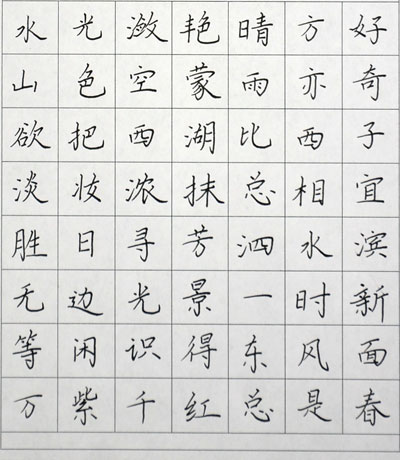 水光潋艳晴方好
山色空蒙雨亦奇
欲把西湖比西子
淡妆浓抹总相宜
胜日寻芳泗水滨
无边光景一时新
等闲识得东风面
万紫千红总是春